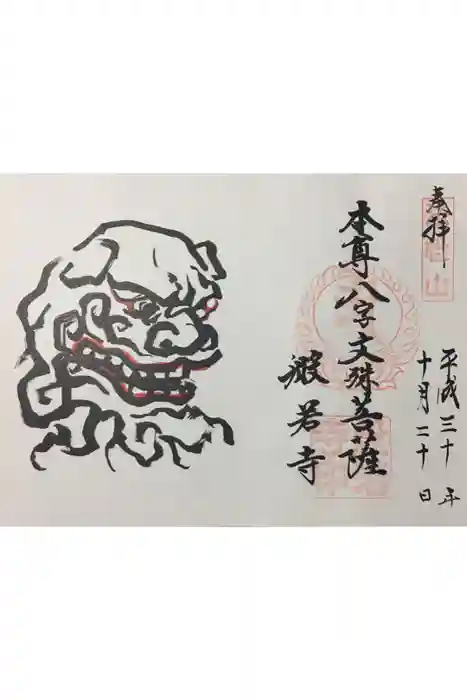 奉拝
平成三十年
十月二十日
本尊八字文殊菩薩
般若寺